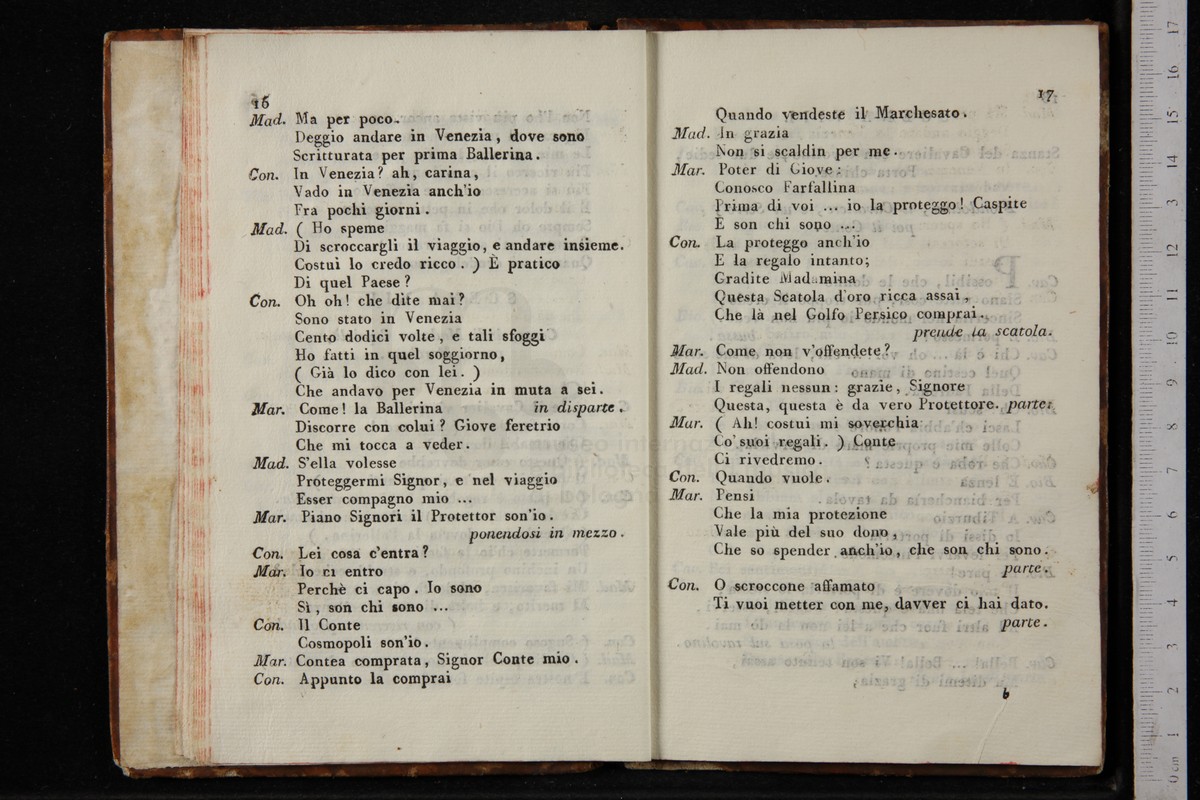 16
Mad. Ma per poco.
Deggio andare in Venezia, dove sono
Scritturata per prima Ballerina.
Con. In Venezia? ah, carina,
Vado in Venezia anch'io
Fra pochi giorni.
Mad. ( Ho speme
Di scroccargli il viaggio, e andare insieme.
Costui lo credo ricco. ) È pratico
Di quel Paese?
Con. Oh oh! che dite mai?
Sono stato in Venezia
Cento dodici volte, e tali sfoggi
Ho fatti in quel soggiorno,
( Già lo dico con lei. )
Che andavo per Venezia in muta a sei.
Mar. Come! la Ballerina in disparte.
Discorre con colui? Giove feretrio
Che mi tocca a veder.
Mad. S'ella volesse
Proteggermi Signor, e nel viaggio
Esser compagno mio ...
Mar. Piano Signori il Protettor son'io.
ponendosi in mezzo.
Con. Lei cosa c'entra?
Mar. Io ci entro
Perchè ci capo. Io sono
Sì, son chi sono ...
Con. Il Conte
Cosmopoli son'io.
Mar. Contea comprata, Signor Conte mio.
Con. Appunto la comprai
17
Quando vendeste il Marchesato.
Mad. In grazia
Non si scaldin per me.
Mar. Poter di Giove:
Conosco Farfallina
Prima di voi ... io la proteggo! Caspite
È son chi sono ...
Con. La proteggo anch'io
E la regalo intanto;
Gradite Madamina
Questa Scatola d'oro ricca assai,
Che là nel Golfo Persico comprai.
prende la scatola.
Mar. Come non v'offendete?
Mad. Non offendono
I regali nessun: grazie, Signore
Questa, questa è da vero Protettore. parte:
Mar. ( Ah! costui mi soverchia
Co' suoi regali. ) Conte
Ci rivedremo.
Con. Quando vuole.
Mar. Pensi
Che la mia protezione
Vale più del suo dono,
Che so spender anch'io, che son chi sono.
parte.
Con. O scroccone affamato
Ti vuoi metter con me, davver ci hai dato.
parte.
b